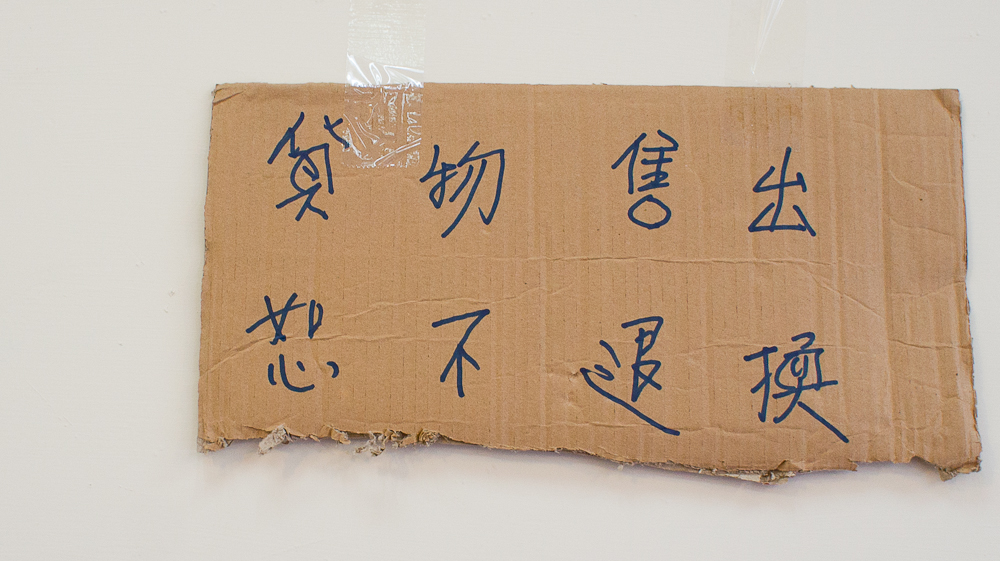 貨物售出
恕不退換